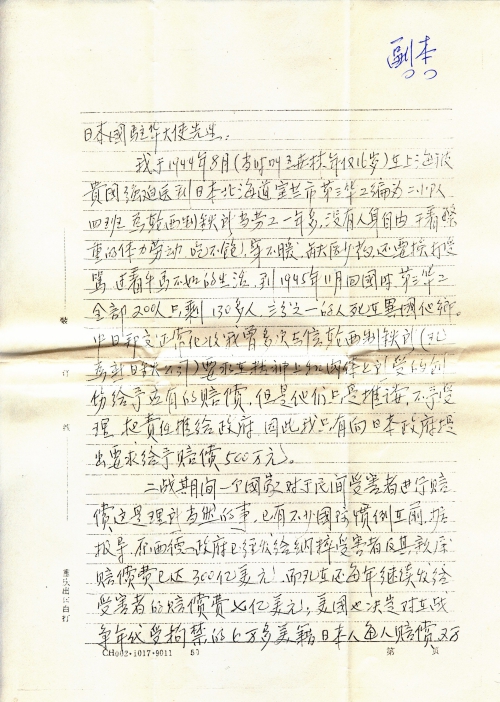 副本
日本国驻华大使先生:
我于1944年8月(当时叫王 枝年仅16岁)在上海被
贵国强迫送到日本北海道室兰市第三华工编为二小队
四班 为轮西制铁所当劳工一年多,没有人身自由 干着繁
重的体力劳动 吃不饱,穿不暖,缺医少药,还要挨打受
骂 过着牛马不如的生活 到1945年11月回国时 第三华工
全部200人只剩130多人,三分之一的人死在异国他乡。
中日邦交正常化后我曾多次去信轮西制铁所(现
为新日铁公司)要求在精神上和肉体上所受的创
伤给予应有的赔偿,但是他们总是推诿 不予受
理 把责任推给政府 因此我只有向日本政府提
出要求给予赔偿500万元。
二战期间一个国家对于民间受害者进行赔
偿这是理所当然的事,已有不少国际惯例在前,据
报导 原西德政府已经发给纳粹受害者及其
赔偿费已达300亿美元 而现在还每年继续发给
受害者的赔偿费七亿美元,美国也决定对在战
争年代受拘禁的6万多美籍日本人每人赔偿2万
装
订
线
重庆出 白打
CH002·1017·9011 50
第 页